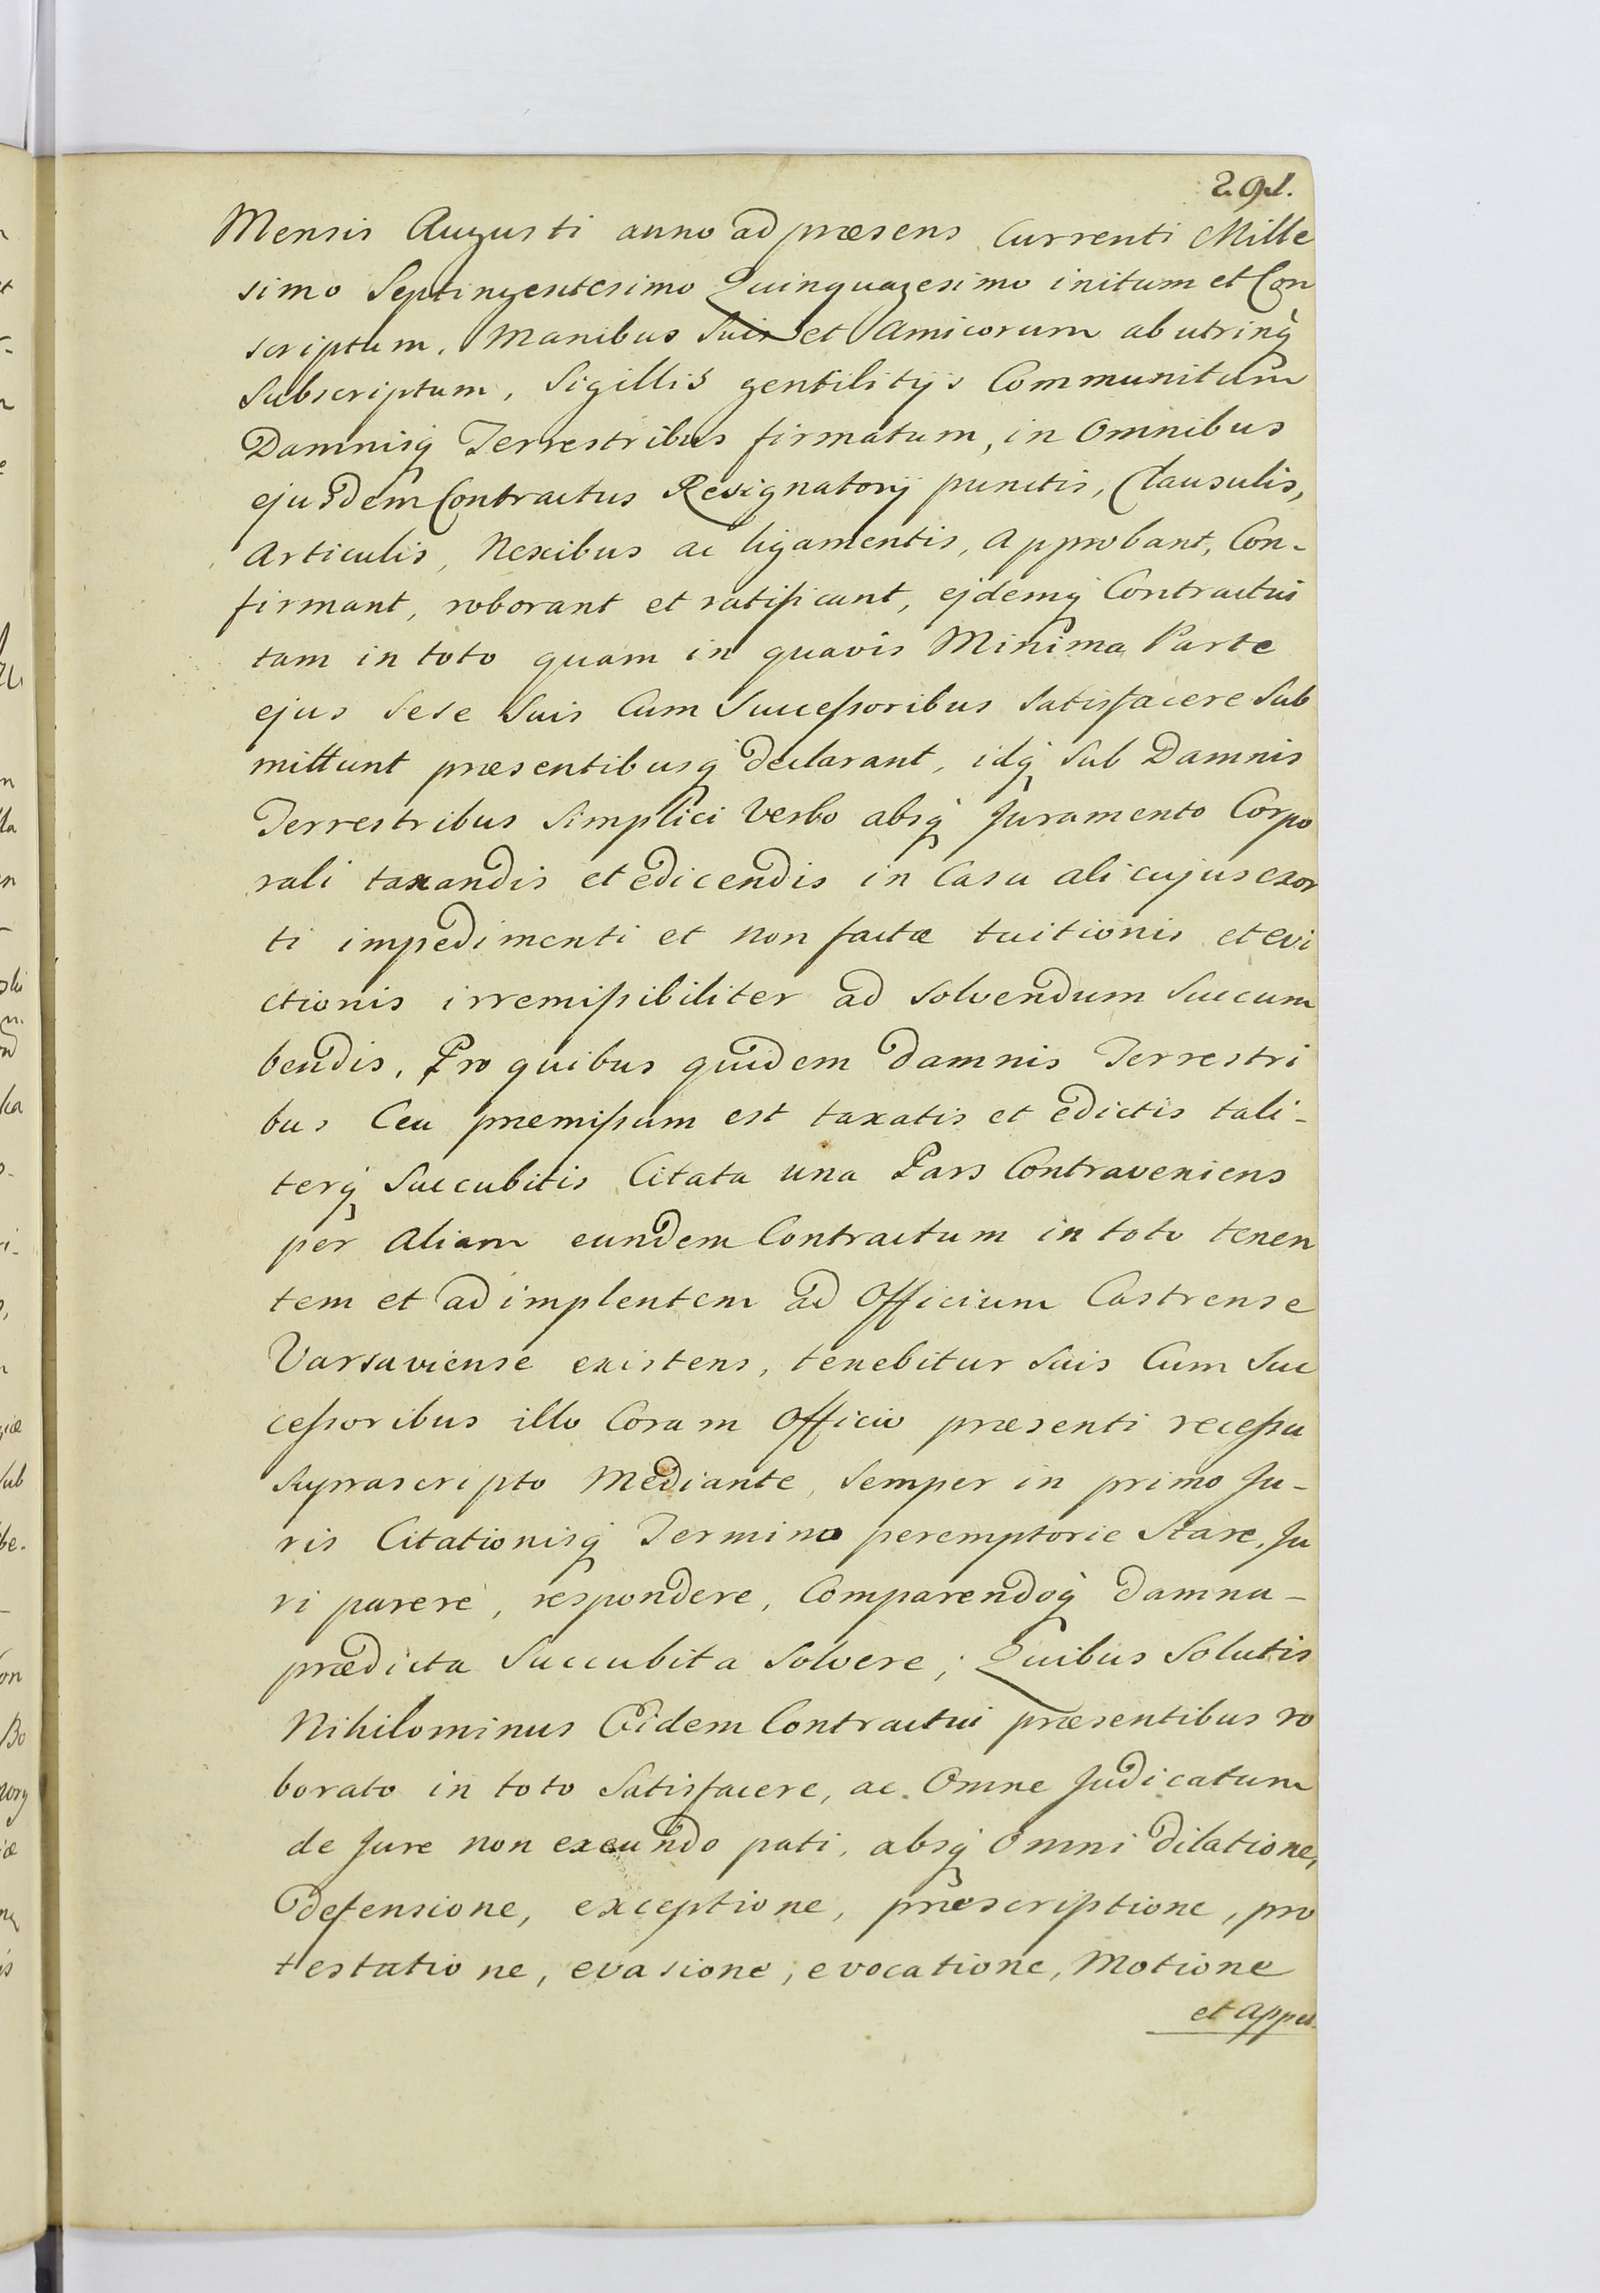 291.
Mensis Augusti anno ad præsens Currenti Mille
simo Septingentesimo Quinquagesimo initum et Con
scriptum, Manibus Suis et Amicorum ab utrinq
Subscriptum, Sigillis gentilitijs Communitum
Damnisq Terrestribus firmatum, in Omnibus
ejusdem Contractus Resignatorij punctis, Clausulis,
Articulis, Nexibus ac ligamentis, Approbant, Con-
firmant, roborant et ratificant, ejdemq Contractui
tam in toto quam in quavis Minima Parte
ejus Sese Suis Cum Successoribus Satisfacere Sub
mittunt præsentibusq declarant, idq Sub Damnis
Terrestribus Simplici Verbo absq Juramento Corpo
rali taxandis et edicendis in Casu alicujus exor
ti impedimenti et non factæ tuitionis et evi
ctionis irremissibiliter ad Solvendum Succum
bendis, Pro quibus quidem Damnis Terrestri
bus Ceu præmissum est taxatis et edictis tali-
terq Succubitis Citata una Pars Contraveniens
per Aliam eundem Contractum in toto tenen
tem et adimplentem ad Officium Castrense
Varsaviense existens, tenebitur Suis Cum Suc
cessoribus illo Coram Officio præsenti recessu
Suprascripto Mediante, Semper in primo Ju-
ris Citationisq Termino peremptorie Stare, Ju
ri parere, respondere, Comparendoq damna-
prædicta Succubita Solvere; Quibus Solutis
Nihilominus Eidem Contractui præsentibus ro
borato in toto Satisfacere, ac Omne Judicatum
de Jure non exeundo pati, absq Omni dilatione,
defensione, exceptione, præscriptione, pro
testatione, evasione, evocatione, Motione
et Appel